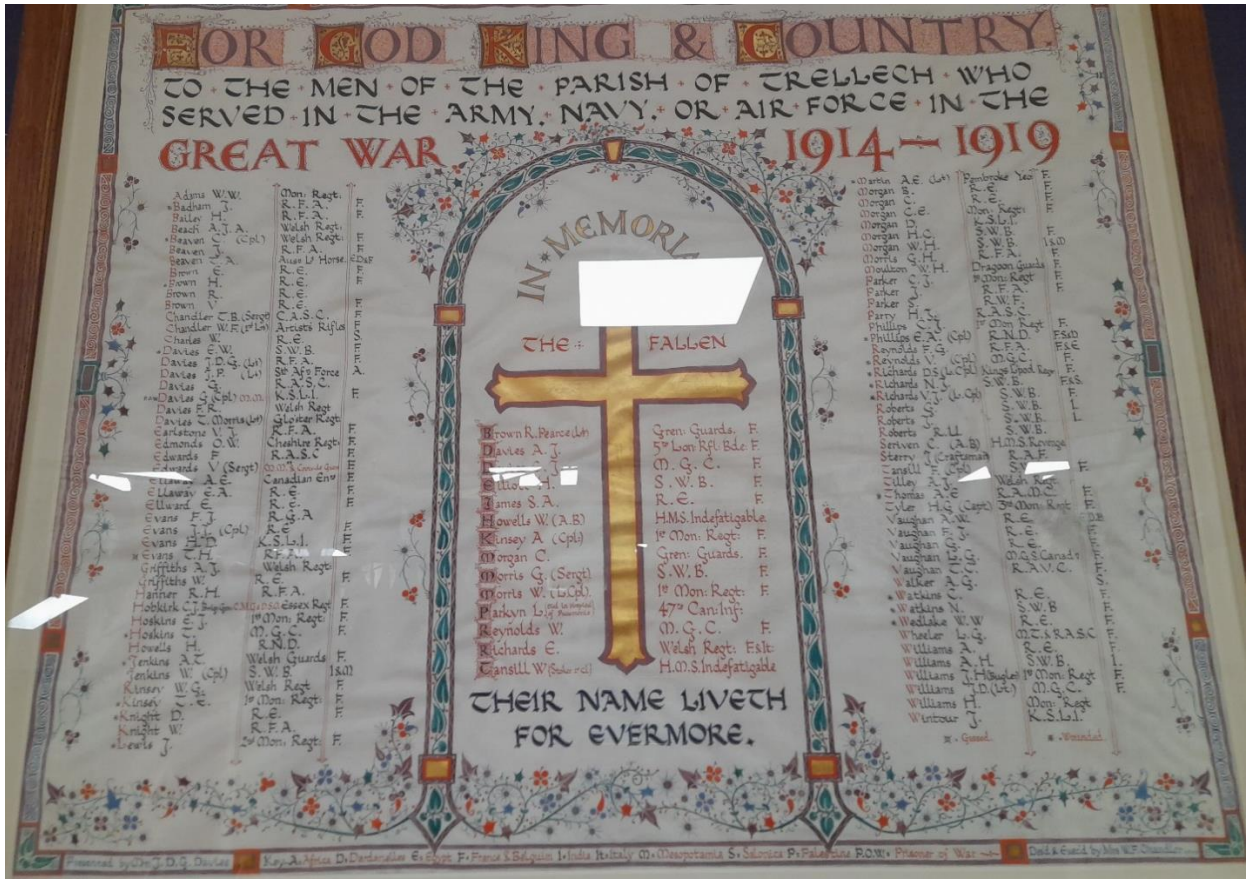 FOR GOD KING & COUNTRY
TO · THE · MEN · OF · THE · PARISH · OF · TRELLECH · WHO
SERVED · IN · THE · ARMY, · NAVY, · OR · AIR · FORCE · IN · THE
GREAT WAR 1914–1919
Adams W.W. Mon: Regt:
Badham J. R.F.A. F.
Bailey H. R.F.A. F.
Beach A.J.A. Welsh Regt:
Beaven C. (Cpl) Welsh Regt: F.
Beaven J. R.F.A. F.
Beaven C.A. Aust Lt Horse. E.D&F
Brown E. R.E. F.
Brown H. R.E. F.
Brown R. R.E. F.
Brown V. R.E.
Chandler T.B. (Sergt) C.A.S.C. F.
Chandler W.F. Artists Rifles F.
Charles W. R.E. S.
Davies E.W. S.W.B. F.
Davies J.D.G. (Lt) R.F.A. F.
Davies J.P. (Lt) Sth Afn Force A.
Davies G. R.A.S.C.
Davies G. (Cpl) M.M. K.S.L.I. F.
Davies F.R. Welsh Regt
Davies T. Morris (Lt) Gloster Regt:
Earlstone V.J. R.F.A. F.
Edmonds O.W. Cheshire Regt: F.
Edwards F. R.A.S.C F.
Edwards V (Sergt)
Ellaway A.E. Canadian Engs
Ellaway E.A. R.E.
Ellward E. R.E.
Evans F.J. R.G.A
Evans J. (Cpl) R.E
Evans K.S.L.I.
Evans T.H. R.F.A.
Griffiths A.J. Welsh Regt:
Griffiths W. R.E. F.
Hanner R.H. R.F.A.
Hobkirk C.J. Brig: Gen: C.M.G & D.S.O. Essex Regt F.
Hoskins E.J. 1st Mon: Regt: F.
Hoskins C. M.G.C. F.
Howells H. R.N.D.
Jenkins A.T. Welsh Guards F.
Jenkins W. (Cpl) S.W.B. I&M
Kinsey W.G. Welsh Regt F.
Kinsey T.E. 1st Mon: Regt: F.
Knight D. R.E. F.
Knight W. R.F.A.
Lewis J. 2nd Mon: Regt: F.
IN MEMORIA
THE FALLEN
Brown R. Pearce (Lt) Gren: Guards. F.
Davies A.J. 5th Lon: Rfl: Bde: F.
M.G.C. F.
Elliott H. S.W.B. F.
James S.A. R.E. F.
Howells W. (A.B) H.M.S. Indefatigable.
Kinsey A (Cpl) 1st Mon: Regt: F.
Morgan C. Gren: Guards. F.
Morris G. (Sergt) S.W.B. F.
Morris W. (L.Cpl). 1st Mon: Regt: F.
Parkyn L. (Died in Hospital of Pneumonia) 47th Can: Inf:
Reynolds W. M.G.C. F.
Richards E. Welsh Regt: F&It:
Tansill W H.M.S. Indefatigable
THEIR NAME LIVETH
FOR EVERMORE.
Martin A.E. (Lt) Pembroke Yeo F.
Morgan B. R.E. F.
Morgan C. R.E. F.
Morgan C.E. Mon: Regt: F.
Morgan D. K.S.L.I. F.
Morgan H.C. S.W.B. F.
Morgan W.H. S.W.B. I&M
Morris G.H. R.F.A. F.
Moulton W.H. Dragoon Guards F.
Parker C.J. 1st Mon: Regt F.
Parker J. R.F.A. F.
Parker S. R.W.F. F.
Parry H.J. R.A.S.C.
Phillips C.J. 1st Mon: Regt F.
Phillips E.A. (Cpl) R.N.D.
Reynolds F.G. R.F.A. F&E
Reynolds V. (Cpl) M.G.C. F.
Richards D.S. (L.Cpl) Kings Lpool Regt F.
Richards N.J. S.W.B. F&S.
Richards V.J. (L.Cpl) S.W.B. F.
Roberts G. S.W.B. I.
Roberts J. S.W.B. I.
Roberts R.U. S.W.B.
Scriven C. (A.B) H.M.S. Revenge
Sterry J. (Craftsman) R.A.F.
Tansill F. (Cpl)
Tilley A.J. Welsh Regt
Thomas A.E R.A.M.C. F.
Tyler H.G (Capt) 3rd Mon: Regt F.
Vaughan A.W. R.E.
Vaughan F.J. R.E.
Vaughan G. R.E.
Vaughan L.G. M.G.S. Canada F.
Vaughan R.A.V.C. F.
Walker A.G. S.
Watkins C. R.E. F.
Watkins N. S.W.B F.
Wedlake W.W R.E. F.
Wheeler L.G. M.T. & R.A.S.C F.
Williams A. R.E. F.
Williams A.H. S.W.B. I.
Williams J.H (Bugler) 1st Mon: Regt F.
Williams J.D. (Lt) M.G.C. F.
Williams H. Mon: Regt:
Wintour J. K.S.L.I.
Gassed. Wounded.
Presented by Mrs J.D.G. Davies Key: A. Africa D. Dardanelles E. Egypt F. France & Belgium I. India It. Italy M. Mesopotamia S. Salonica P. Palestine P.O.W. Prisoner of War by Mrs W.F. Chandler